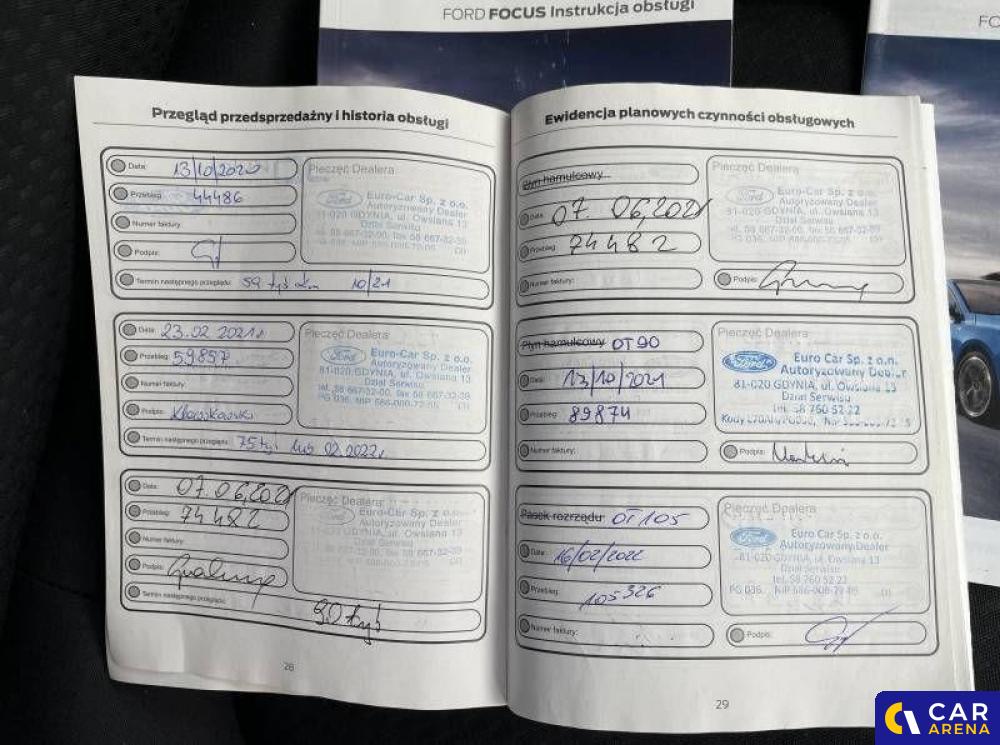 FORD FOCUS Instrukcja obsługi
FO
Przegląd przedsprzedażny i historia obsługi
Data: 13/10/2020
Przebieg: 44486
Numer faktury:
Podpis:
Termin następnego przeglądu: 59 tyś km 10/21
Pieczęć Dealera
Ford
Euro-Car Sp. z o.o.
Autoryzowany Dealer
81-020 GDYNIA, ul. Owsiana 13
Dział Serwisu
tel. 58 667-32-00, fax 58 667-32-39
Data: 23.02.2021r
Przebieg: 59857
Numer faktury:
Podpis:
Termin następnego przeglądu: 75tyś lub 02.2022r
Pieczęć Dealera
Ford
Euro-Car Sp. z o.o.
Autoryzowany Dealer
81-020 GDYNIA, ul. Owsiana 13
Dział Serwisu
tel. 58 667-32-00, fax 58 667-32-39
Data: 07.06.2021
Przebieg: 74482
Numer faktury:
Podpis:
Termin następnego przeglądu: 90 tyś
Pieczęć Dealera
Ford
Euro-Car Sp. z o.o.
Autoryzowany Dealer
81-020 GDYNIA, ul. Owsiana 13
Dział Serwisu
28
Ewidencja planowych czynności obsługowych
Płyn hamulcowy
Data: 07.06.2021
Przebieg: 74482
Numer faktury:
Pieczęć Dealera
Ford
Euro-Car Sp. z o.o.
Autoryzowany Dealer
81-020 GDYNIA, ul. Owsiana 13
Dział Serwisu
Podpis:
Płyn hamulcowy OT90
Data: 13/10/2021
Przebieg: 89874
Numer faktury:
Pieczęć Dealera
Ford
Euro Car Sp. z o.o.
Autoryzowany Dealer
81-020 GDYNIA, ul. Owsiana 13
Dział Serwisu
tel. 58 760 52 22
Podpis:
Pasek rozrządu OT105
Data: 16/02/2022
Przebieg: 105326
Numer faktury:
Pieczęć Dealera
Ford
Euro Car Sp. z o.o.
Autoryzowany Dealer
81-020 GDYNIA, ul. Owsiana 13
Dział Serwisu
tel. 58 760 52 22
Podpis:
29
CAR
ARENA